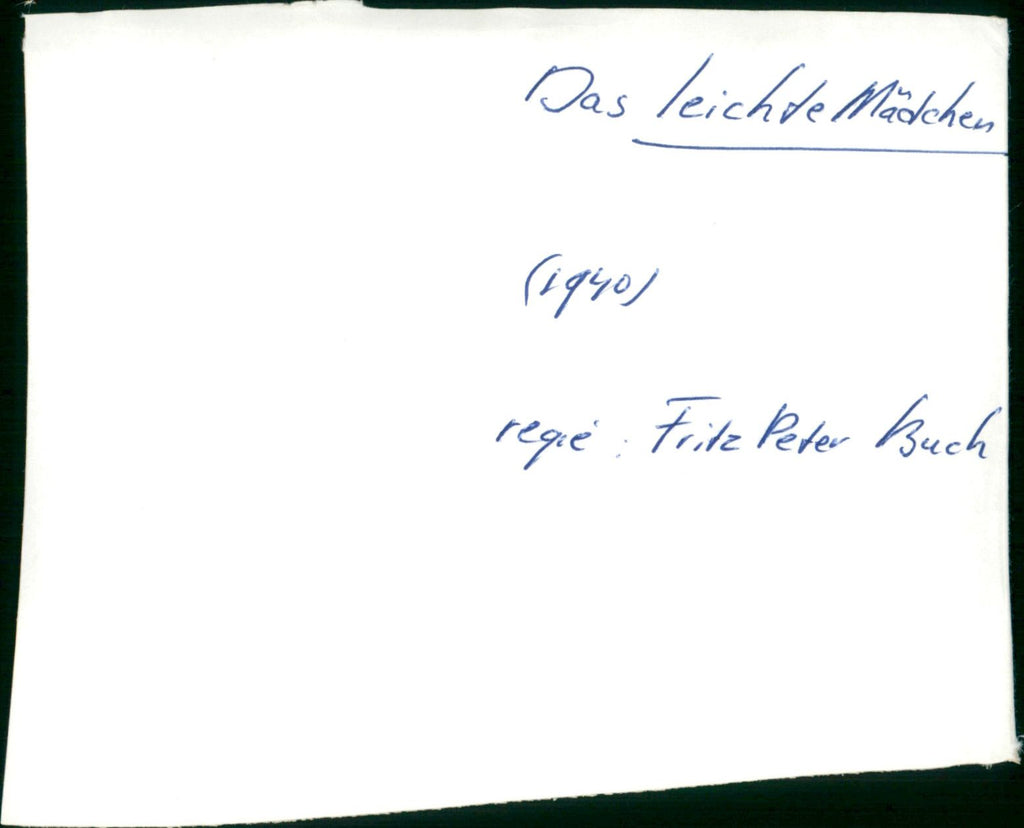 Das leichte Mädchen
(1940)
regié : Fritz Peter Buch